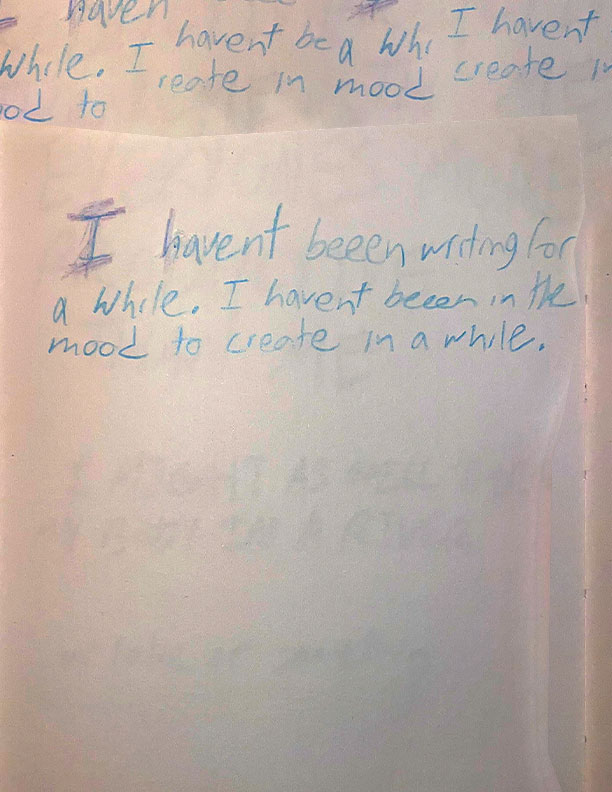 haven
while. I havent be a whi I havent
reate in mood create in
ood to
I havent beeen writing for
a while. I havent beeen in the
mood to create in a while.